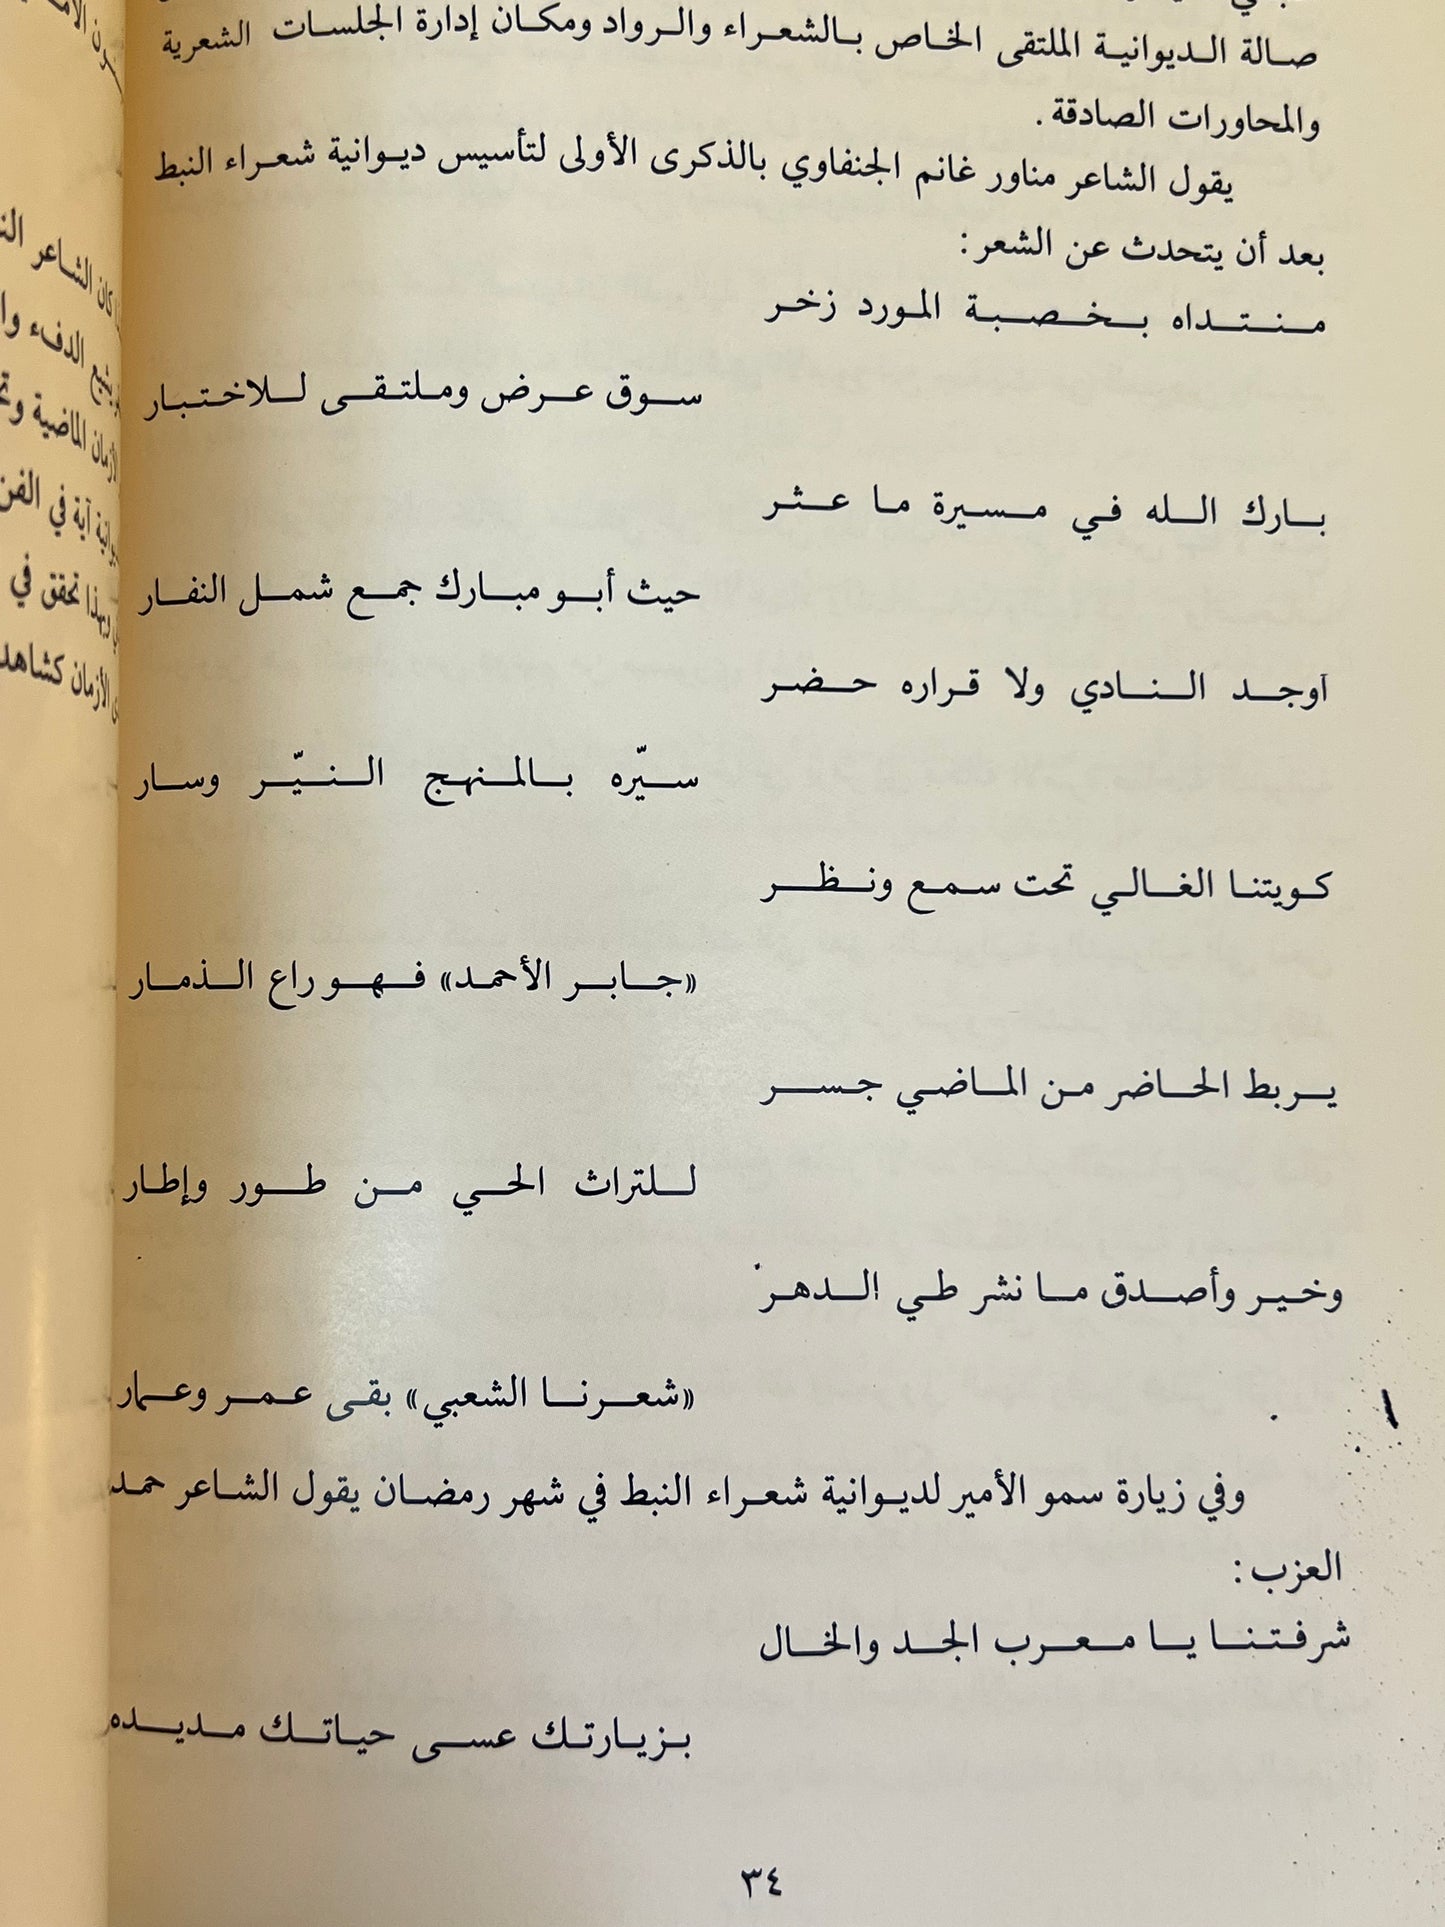 صالة الديوانية الملتقى الخاص بالشعراء والرواد ومكان إدارة الجلسات الشعرية
والمحاورات الصادقة.
يقول الشاعر مناور غانم الجنفاوي بالذكرى الأولى لتأسيس ديوانية شعراء النبط
بعد أن يتحدث عن الشعر:
منتداه بخصبة المورد زخر
سوق عرض وملتقى للاختبار
بارك الله في مسيرة ما عثر
حيث أبو مبارك جمع شمل النفار
اوجد النادي ولا قراره حضر
سيّره بالمنهج النيّر وسار
كويتنا الغالي تحت سمع ونظر
«جابر الأحمد» فهو راع الذمار
يربط الحاضر من الماضي جسر
للتراث الحي من طور وإطار
وخير وأصدق ما نشر طي الدهر
«شعرنا الشعبي» بقى عمر وعمار
وفي زيارة سمو الأمير لديوانية شعراء النبط في شهر رمضان يقول الشاعر حمد
العزب:
شرفتنا يا معرب الجد والخال
بزيارتك عسى حياتك مديده
٣٤
كان الشاعر
الدفء
الأزمان الماضية
آية في الفن
وبهذا تحقق في
الأزمان كشاهد